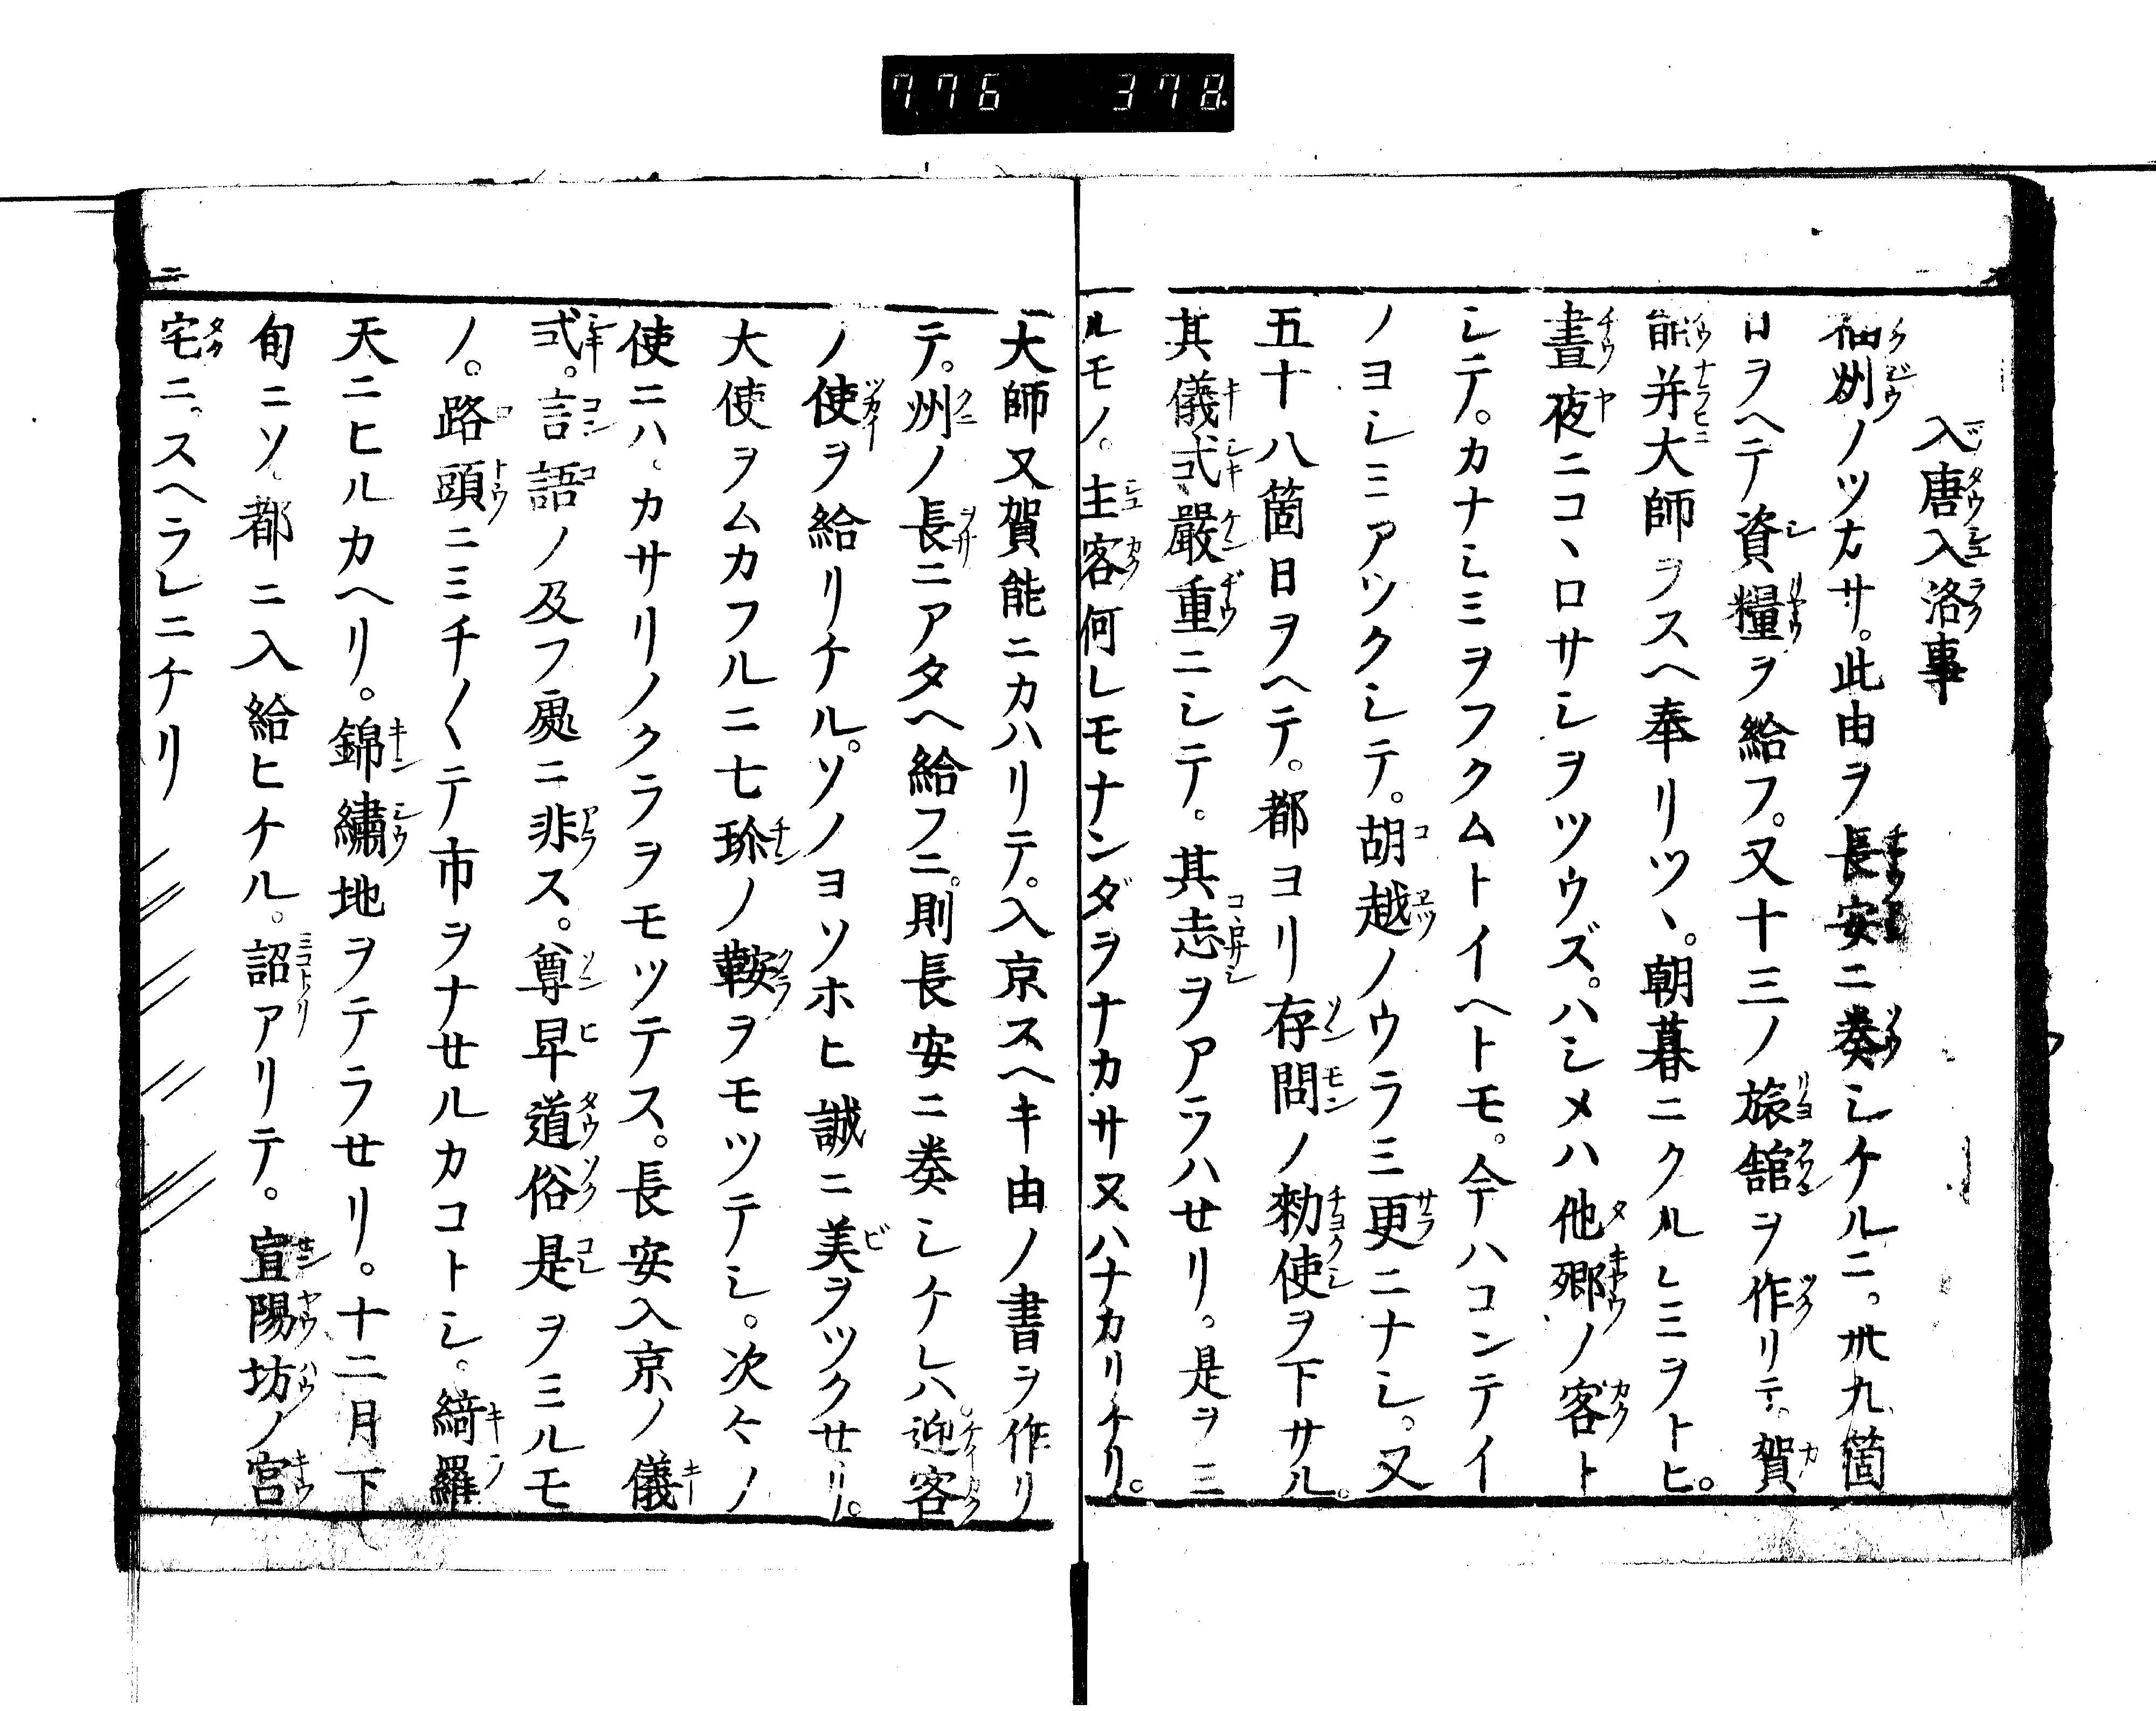 776 378
入唐入洛事
州ノツカサ。此由ヲ長安ニ奏シケルニ。卅九箇
日ヲヘテ資糧ヲ給フ。又十三ノ旅舘ヲ作リテ。賀
能并大師ヲスヘ奉リツヽ。朝暮ニクルシミヲトヒ。
晝夜ニコヽロサシヲツウズ。ハシメハ他郷ノ客ト
シテ。カナシミヲフクムトイヘトモ。今ハコンテイ
ノヨシミアツクシテ。胡越ノウラミ更ニナシ。又
五十八箇日ヲヘテ。都ヨリ存問ノ勅使ヲ下サル。
其儀式嚴重ニシテ。其志ヲアラハせリ。是ヲミ
ルモノ。主客何レモナンダヲナカサヌハナカリケリ。
大師又賀能ニカハリテ。入京スヘキ由ノ書ヲ作リ
テ。州ノ長ニアタヘ給フニ。則長安ニ奏シケレハ。迎客
ノ使ヲ給リケル。ソノヨソホヒ誠ニ美ヲツクせリ。
大使ヲムカフルニ七珎ノ鞍ヲモツテシ。次々ノ
使ニハ、カサリノクラヲモツテス。長安入京ノ儀
式。言語ノ及フ處ニ非ス。尊卑道俗是ヲミルモ
ノ。路頭ニミチ〳〵テ市ヲナせルカコトシ。綺羅
天ニヒルカヘリ。錦繍地ヲテラせリ。十二月下
旬ニソ、都ニ入給ヒケル。詔アリテ。宣陽坊ノ宮
宅ニ。スヘラレニケリ
二